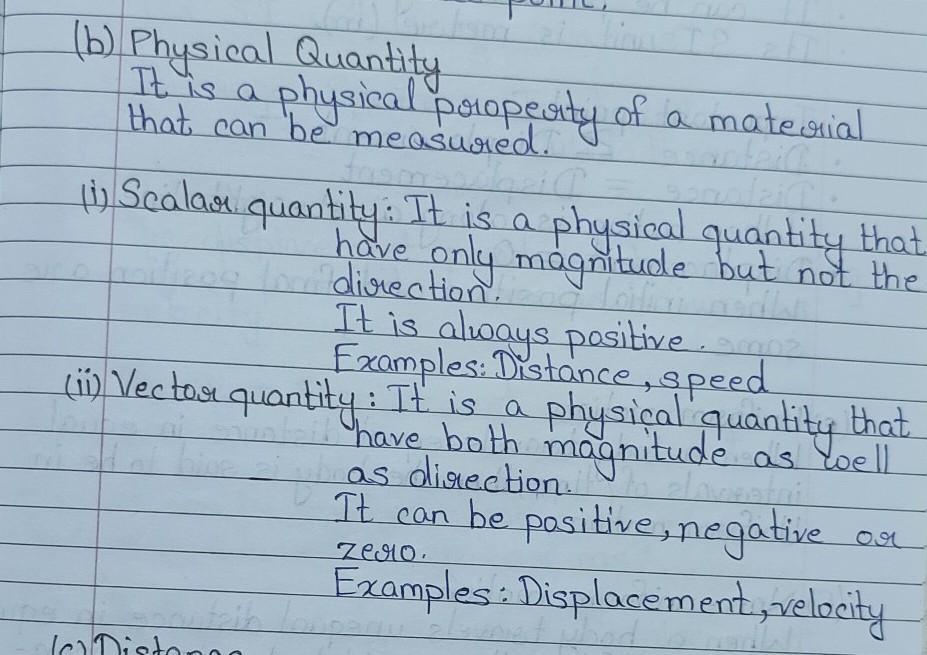 (b) Physical Quantity
It is a physical property of a material
that can be measured.
(i) Scalar quantity: It is a physical quantity that
have only magnitude but not the
direction.
It is always positive.
Examples: Distance, speed
(ii) Vector quantity: It is a physical quantity that
have both magnitude as well
as direction.
It can be positive, negative or
zero.
Examples: Displacement, velocity
(c) Distance